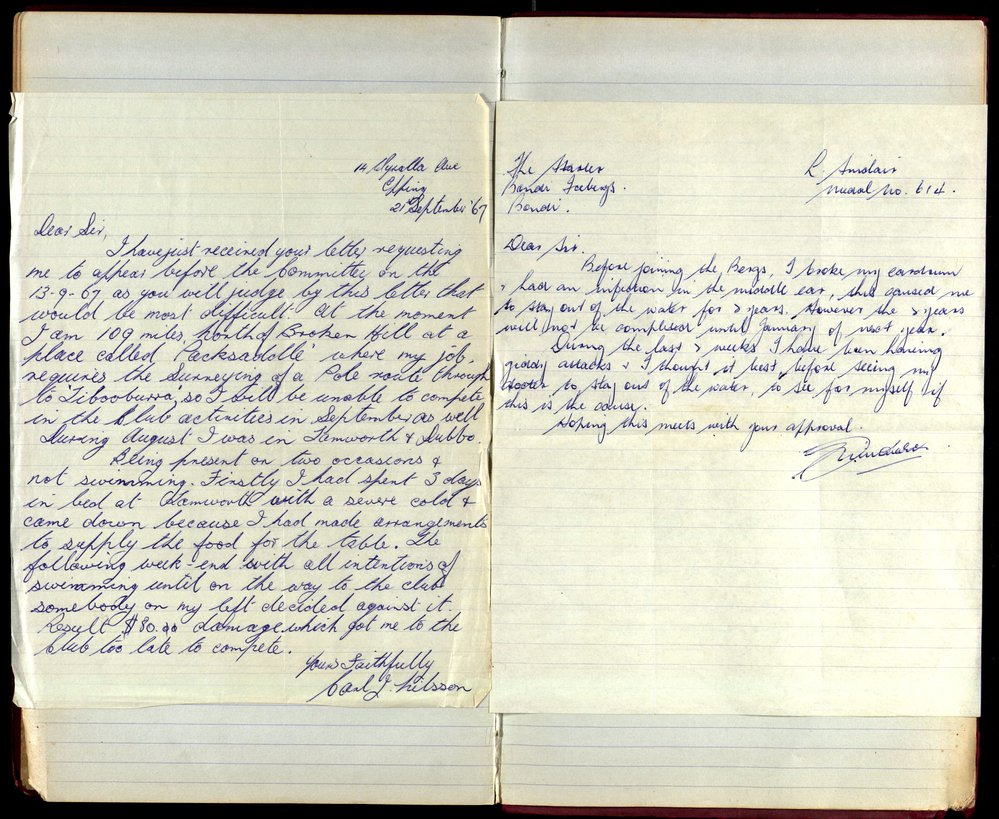 14 Myralla Ave
Epping
21st September '67
Dear Sir,
I have just received your letter requesting
me to appear before the Committee on the
13-9-67 as you will judge by this letter that
would be most difficult. At the moment
I am 109 miles north of Broken Hill at a
place called 'Packsaddle' where my job
requires the Surveying of a Pole route through
to Tibooburra, so I will be unable to compete
in the Club activities in September as well.
During August I was in Tamworth & Dubbo.
Being present on two occasions &
not swimming. Firstly I had spent 3 days
in bed at Tamworth with a severe cold &
came down because I had made arrangements
to supply the food for the table. The
following week-end with all intentions of
swimming until on the way to the club
somebody on my left decided against it.
Result $80.00 damage which got me to the
Club too late to compete.
Yours Faithfully
Carl J. Nilsson
The Starter
Bondi Icebergs.
Bondi.
R. Sinclair
Medal No. 614.
Dear Sir.
Before joining the Bergs, I broke my eardrum
& had an infection in the middle ear, this caused me
to stay out of the water for 2 years. However the 2 years
will not be completed until January of next year.
During the last 2 weeks I have been having
giddy attacks & I thought it best, before seeing my
doctor, to stay out of the water, to see for myself if
this is the cause.
Hoping this meets with your approval.
R Sinclair